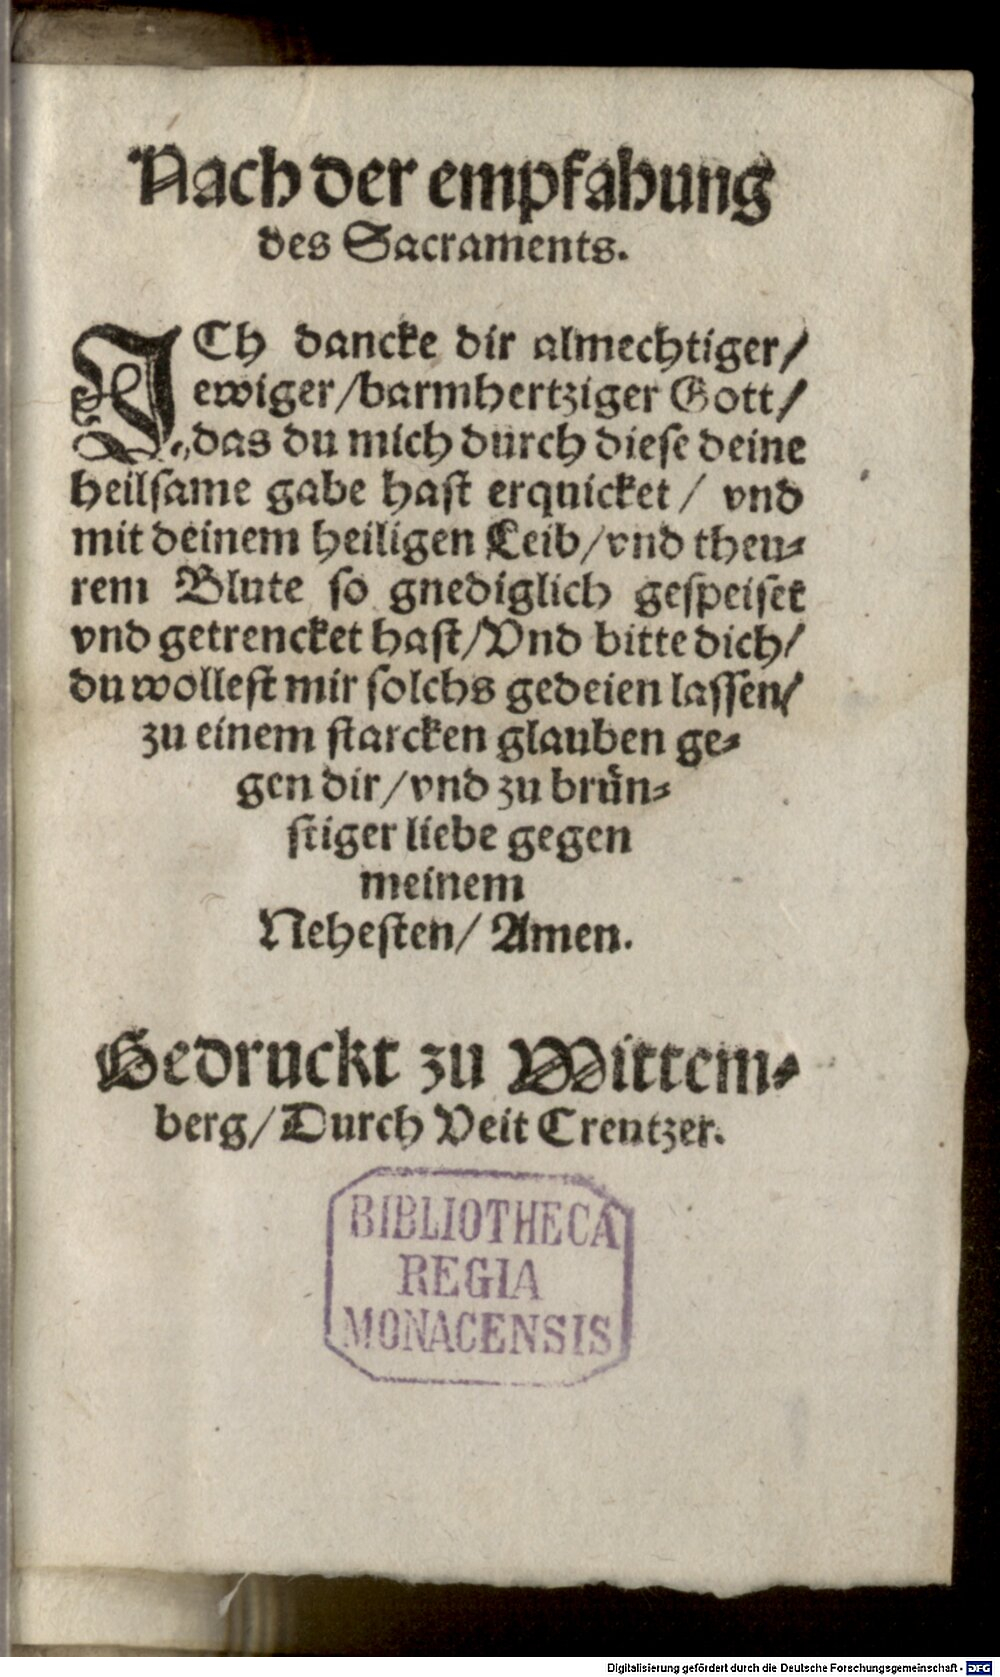 Nach der empfahung
des Sacraments.
ICh dancke dir almechtiger/
ewiger/barmhertziger Gott/
das du mich durch diese deine
heilsame gabe hast erquicket/ vnd
mit deinem heiligen Leib/vnd theu-
rem Blute so gnediglich gespeiset
vnd getrencket hast/Vnd bitte dich/
du wollest mir solchs gedeien lassen/
zu einem starcken glauben ge-
gen dir/vnd zu brün-
stiger liebe gegen
meinem
Nehesten/ Amen.
Gedruckt zu Wittem-
berg/Durch Veit Creutzer.
BIBLIOTHECA
REGIA
MONACENSIS
Digitalisierung gefördert durch die Deutsche Forschungsgemeinschaft - DFG